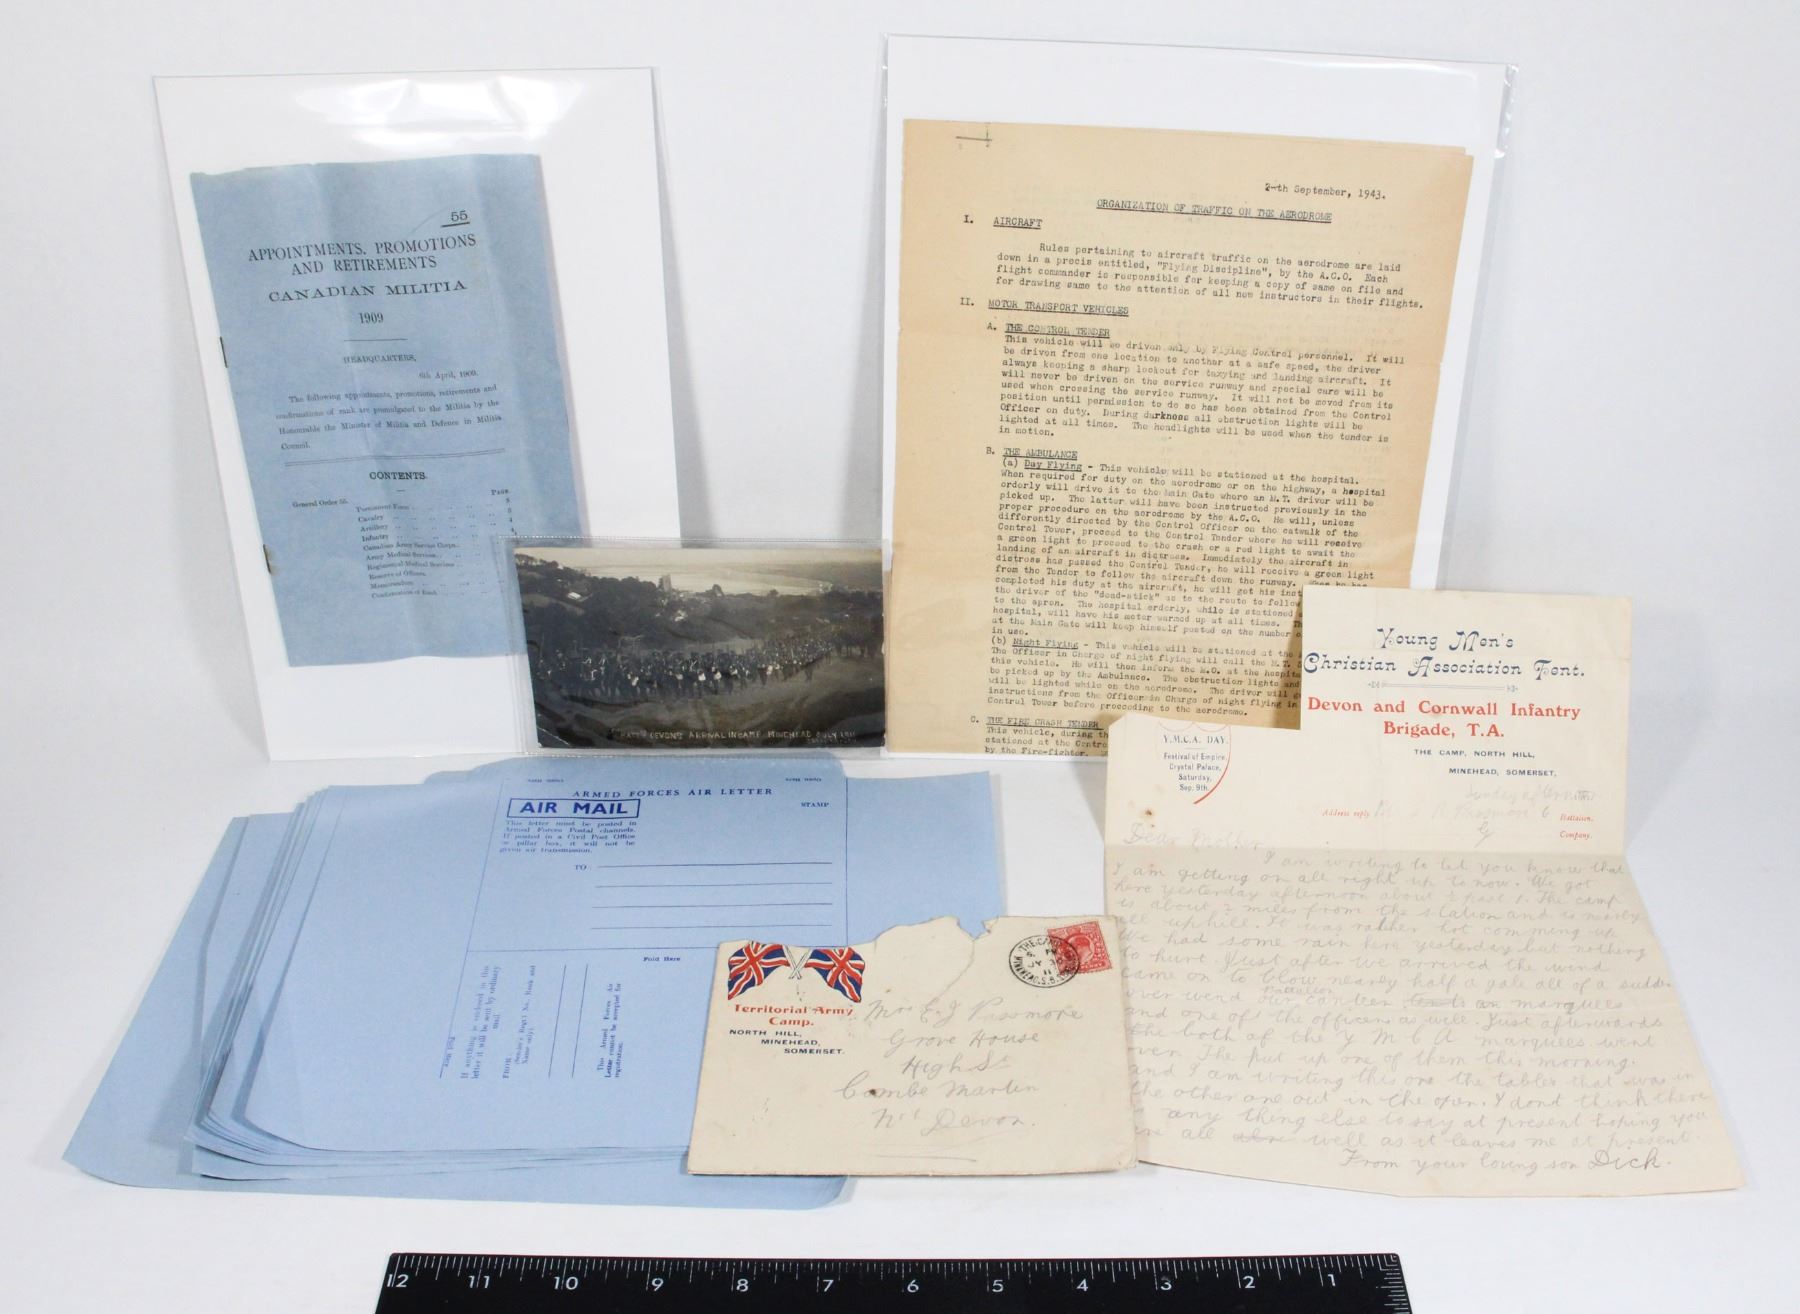 55
APPOINTMENTS, PROMOTIONS
AND RETIREMENTS
CANADIAN MILITIA
1909
HEADQUARTERS,
6th April, 1909.
The following appointments, promotions, retirements and
confirmations of rank are promulgated to the Militia by the
Honourable the Minister of Militia and Defence in Militia
Council.
CONTENTS.
PAGE
General Order 55.
Permanent Force
Cavalry
Artillery
Infantry
Canadian Army Service Corps
Army Medical Services
Regimental Medical Services
Reserve of Officers
Memorandum
Confirmation of Rank
September, 1943.
ORGANIZATION OF TRAFFIC ON THE AERODROME
I. AIRCRAFT
Rules pertaining to aircraft traffic on the aerodrome are laid
down in a precis entitled, "Flying Discipline", by the A.C.O. Each
flight commander is responsible for keeping a copy of same on file and
for drawing same to the attention of all new instructors in their flights.
II. MOTOR TRANSPORT VEHICLES
A. THE CONTROL TENDER
This vehicle will be driven only by Flying Control personnel. It will
be driven from one location to another at a safe speed, the driver
always keeping a sharp lookout for taxying and landing aircraft. It
will never be driven on the service runway and special care will be
used when crossing the service runway. It will not be moved from its
position until permission to do so has been obtained from the Control
Officer on duty. During darkness all obstruction lights will be
lighted at all times. The headlights will be used when the tender is
in motion.
B. THE AMBULANCE
(a) Day Flying - This vehicle will be stationed at the hospital.
When required for duty on the aerodrome or on the highway, a hospital
orderly will drive it to the Main Gate where an M.T. driver will be
picked up. The latter will have been instructed previously in the
proper procedure on the aerodrome by the A.C.O. He will, unless
differently directed by the Control Officer on the catwalk of the
Control Tower, proceed to the Control Tender where he will receive
a green light to proceed to the crash or a red light to await the
landing of an aircraft in distress. Immediately the aircraft in
distress has passed the Control Tender, he will receive a green light
from the Tender to follow the aircraft down the runway. When he has
completed his duty at the aircraft, he will get his inst
the driver of the "dead-stick" as to the route to follow
to the apron. The hospital orderly, while is stationed
hospital, will have his motor warmed up at all times. Th
at the Main Gate will keep himself posted on the number o
in use.
(b) Night Flying - This vehicle will be stationed at the
The Officer in Charge of night flying will call the M.T.
this vehicle. He will then inform the M.O. at the hospital
be picked up by the Ambulance. The obstruction lights and
will be lighted while on the aerodrome. The driver will g
instructions from the Officer in Charge of night flying in
Control Tower before proceeding to the aerodrome.
C. THE FIRE CRASH TENDER
This vehicle, during th
stationed at the Contro
by the Fire-fighter.
BATTN DEVONS ARRIVAL IN CAMP. MINEHEAD JULY 1911
Young Men's
Christian Association Tent.
Devon and Cornwall Infantry
Brigade, T.A.
THE CAMP, NORTH HILL,
MINEHEAD, SOMERSET,
Y.M.C.A. DAY.
Festival of Empire,
Crystal Palace,
Saturday,
Sep. 9th.
Sunday afternoon
Address reply Passmore 6 Battalion.
G Company.
Dear
I am writing to let you know that
I am getting on all right up to now. We got
here yesterday afternoon about ½ past 1. The camp
is about 2 miles from the station and is nearly
all up hill. It was rather hot comming up
We had some rain here yesterday but nothing
to hurt. Just after we arrived the wind
came on to blow nearly half a gale all of a sudden
over wend our Battalion canteen an marquees
and one of the officers as well. Just afterwards
the both of the Y M C A marquees went
over. The put up one of them this morning.
and I am writing this on the tables that was in
the other one out in the open. I dont think there
is any thing else to say at present hoping you
are all well as it leaves me at present.
From your loving son Dick.
Open Here
Open Here
ARMED FORCES AIR LETTER
AIR MAIL
STAMP
This letter must be posted in
Armed Forces Postal channels.
If posted in a Civil Post Office
or pillar box, it will not be
given air transmission.
TO
Fold Here
Fold Here
If anything is enclosed in this
letter it will be sent by ordinary
mail.
FROM
(Sender's Regt'l No., Rank and
Name only).
This Armed Forces Air
Letter cannot be accepted for
registration.
Territorial Army
Camp.
NORTH HILL,
MINEHEAD,
SOMERSET.
THE CAMP
JY 30
11
MINEHEAD S.O.
Mrs E. J Passmore
Grove House
High St
Combe Martin
Nth Devon.
12 11 10 9 8 7 6 5 4 3 2 1